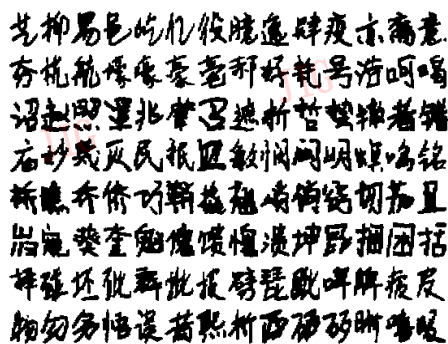 艺抑易邑屹亿役臆逸肄疫亦裔意
夯杭航壕嚎豪毫郝好耗号浩呵喝
诏赵照罩兆肇召遮折哲蛰辙者锗
庙妙蔑灭民抿皿敏悯闽明螟鸣铭
桥瞧乔侨巧鞘撬翘峭俏窍切茄且
岿窥葵奎魁傀馈愧溃坤昆捆困括
捧碰坯砒霹批披劈琵毗啤脾疲皮
物勿务悟误昔熙析西硒矽晰嘻吸